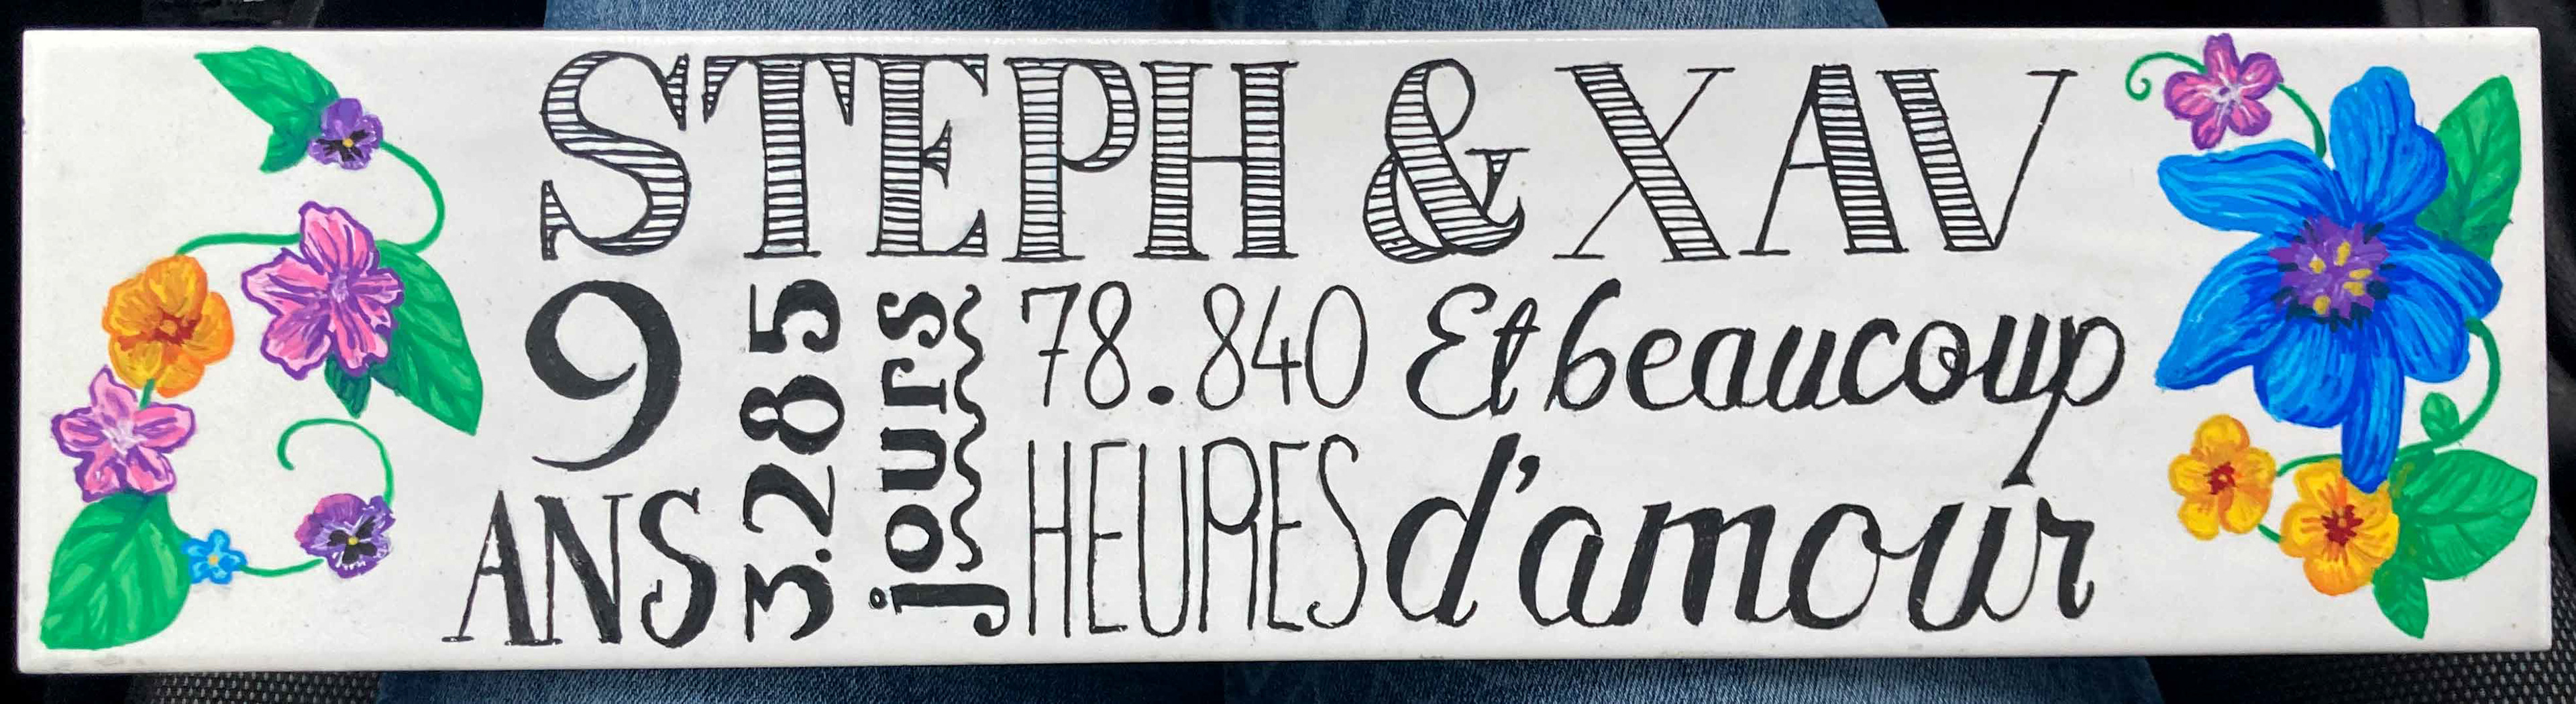 STEPH & XAV
9
ANS
3.285
jours
78.840
HEURES
Et beaucoup
d'amour